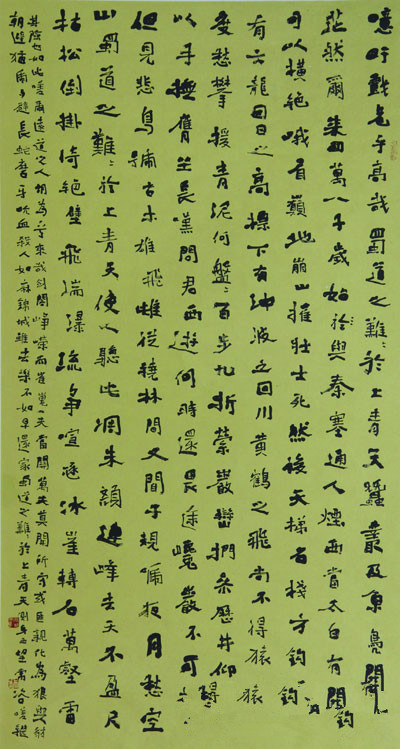 噫吁戲危乎高哉蜀道之難〻於上青天蠶叢及魚鳧開
茫然爾來四萬八千歲始於與秦塞通人煙西當太白有
可以橫絕峨眉巔地崩山摧壯士死然後天梯石棧方鈎
有六龍回日之高標下有沖波之回川黃鶴之飛尚不得猿
度愁攀援青泥何盤〻百步九折縈巖巒捫參歷井仰
以手撫膺坐長嘆問君西遊何時還畏途巉巖不可
但見悲鳥號古木雄飛雌從繞林間又聞子規啼夜月愁空
山蜀道之難〻於上青天使人聽此凋朱顏連峰去天不盈尺
枯松倒掛倚絕壁飛湍瀑流爭喧豗冰崖轉石萬壑雷
其險也如此嗟爾遠道之人胡為乎來哉劍閣崢嶸而崔嵬一夫當關萬夫莫開所守或匪親化為狼與豺
朝避猛虎夕避長蛇磨牙吮血殺人如麻錦城雖云樂不如早還家蜀道之難〻於上青天側身西望常咨嗟